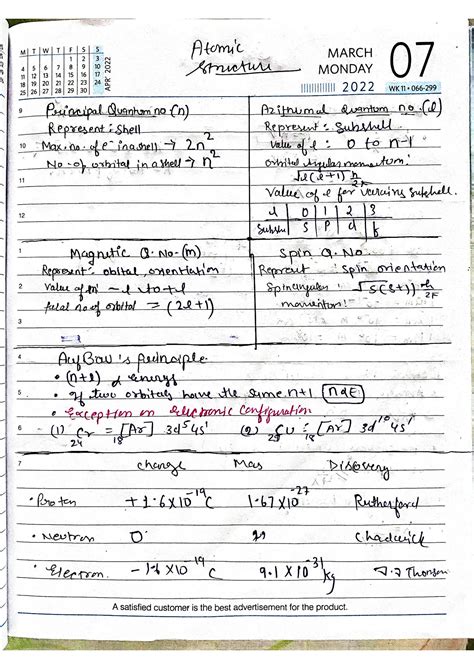 M T W T F S S
1 2 3
4 5 6 7 8 9 10
11 12 13 14 15 16 17
18 19 20 21 22 23 24
25 26 27 28 29 30
APR' 2022
Atomic
Structure
MARCH
MONDAY
2022
07
WK 11 • 066-299
9
Principal Quantum no (n)
Represent: Shell
10
Max. no. of e⁻ in a shell → 2n²
No. of orbital in a shell → n²
11
12
Azithumal Quantum no. (l)
Represent: Subshell
Value of l : 0 to n-1
orbital angular momentum:
√l(l+1) h/2π
Value of l for various subshell.
l 0 1 2 3
Subshell S P d f
1
Magnetic Q. No. (m)
Represent: obital, orientiation
2
Value of m -l to +l
total no. of orbital = (2l+1)
3
Spin Q. No.
Represent : Spin orientation
Spin angular : √s(s+1) h/2π
momentum:
4
Auf Bau's principle
• (n+l) α energy
5
• If two orbitals have the same n+l n α E
• Exception in electronic configuration
6
(1) ₂₄Cr = ₁₈[Ar] 3d⁵4s¹ (2) ₂₉Cu : ₁₈[Ar] 3d¹⁰4s¹
7
Charge Mas Discovery
• Proton +1.6X10⁻¹⁹C 1.67X10⁻²⁷ Rutherford
• Neutron 0 Chadwick
• Electron. -1.6X10⁻¹⁹C 9.1X10⁻³¹kg J.J Thomson
A satisfied customer is the best advertisement for the product.